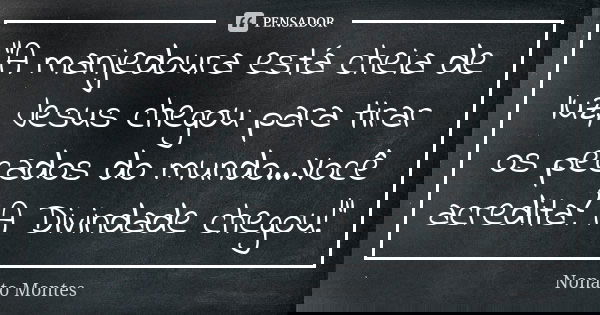 PENSADOR
"A manjedoura está cheia de
luz, Jesus chegou para tirar
os pecados do mundo...Você
acredita? A Divindade chegou!"
Nonato Montes